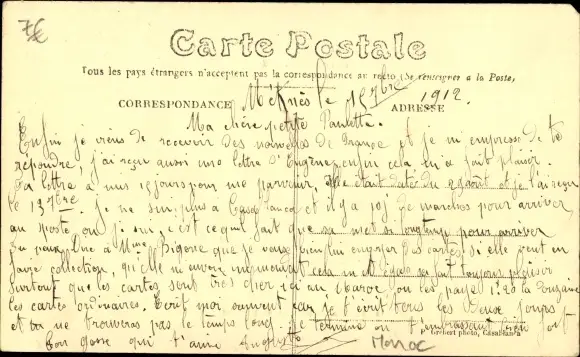 7€
Carte Postale
Tous les pays étrangers n'acceptent pas la correspondance au recto (Se renseigner a la Poste)
CORRESPONDANCE Meknès le 15 7bre 1912.
ADRESSE
Ma chère petite Paulette.
Enfin je viens de recevoir des nouvelles de France et je m'empresse de te
répondre, j'ai reçu aussi une lettre d'Eugène enfin cela m'a fait plaisir.
Ta lettre a mis 19 jours pour me parvenir, elle était datée du août et je l'ai reçu
le 13 7bre. Je ne suis plus a Casablanca et il y a 10j. de marches pour arriver
au poste ou je suis c'est ce qui fait que sa met si longtemps pour arriver
Tu peux dire à Mme Bigosse que je veux bien lui envoyer des cartes si elle veut en
faire collection, qu'elle m'envoie cela m
surtout que les cartes sont très cher ici au Maroc on les paye 1f20 la douzaine
les cartes ordinaires. Ecrit moi souvent car je t'écrit tous les deux jours
et tu ne trouveras pas le temps long. Je termine en t'embrassant bien fort
Ton gosse qui t'aime Auguste
P. Grébert photo, Casablanca
Maroc